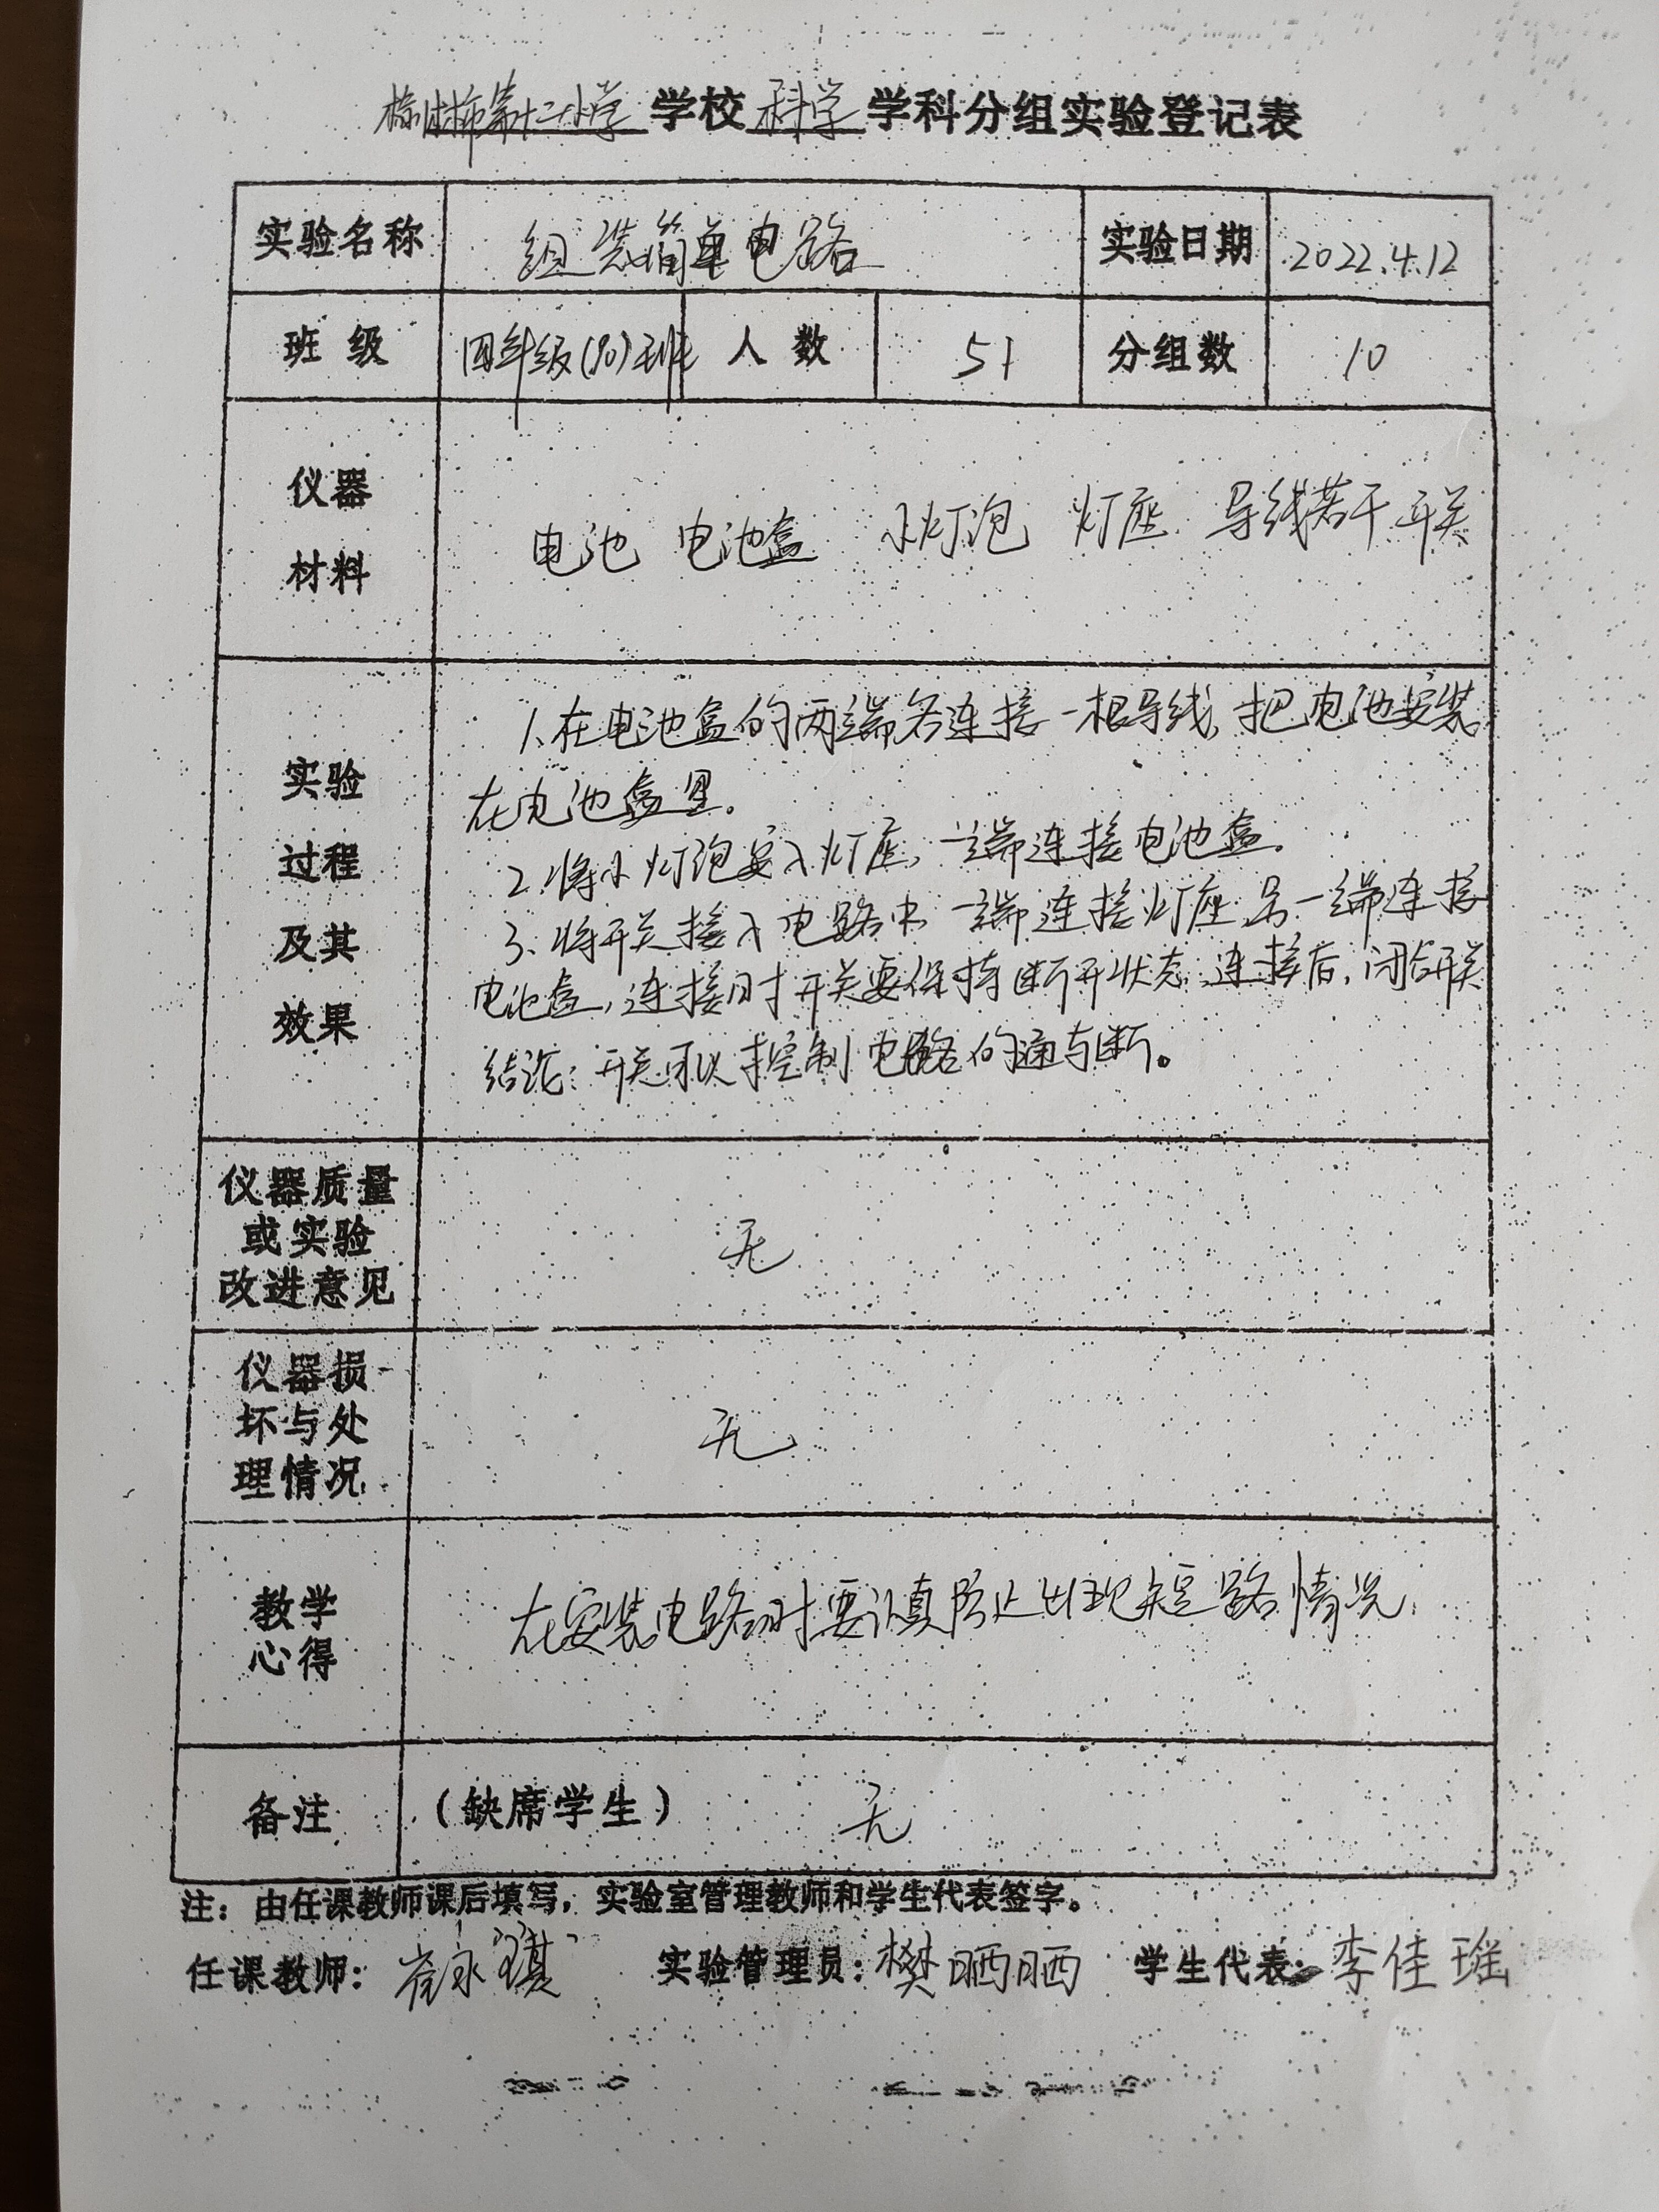 榆林市第十二小学 学校 科学 学科分组实验登记表
实验名称 组装简单电路 实验日期 2022.4.12
班级 四年级(10)班 人数 51 分组数 10
仪器
材料
电池 电池盒 小灯泡 灯座 导线若干 开关
实验
过程
及其
效果
1、在电池盒的两端各连接一根导线,把电池安装
在电池盒里。
2、将小灯泡安入灯座,一端连接电池盒。
3、将开关接入电路中一端连接灯座,另一端连接
电池盒,连接时开关要保持断开状态,连接后,闭合开关
结论:开关可以控制电路的通与断。
仪器质量
或实验
改进意见
无
仪器损
坏与处
理情况
无
教学
心得
在安装电路时要认真防止出现短路情况.
备注 (缺席学生) 无
注:由任课教师课后填写,实验室管理教师和学生代表签字。
任课教师: 崔永琪 实验管理员: 樊晒晒 学生代表: 李佳瑶